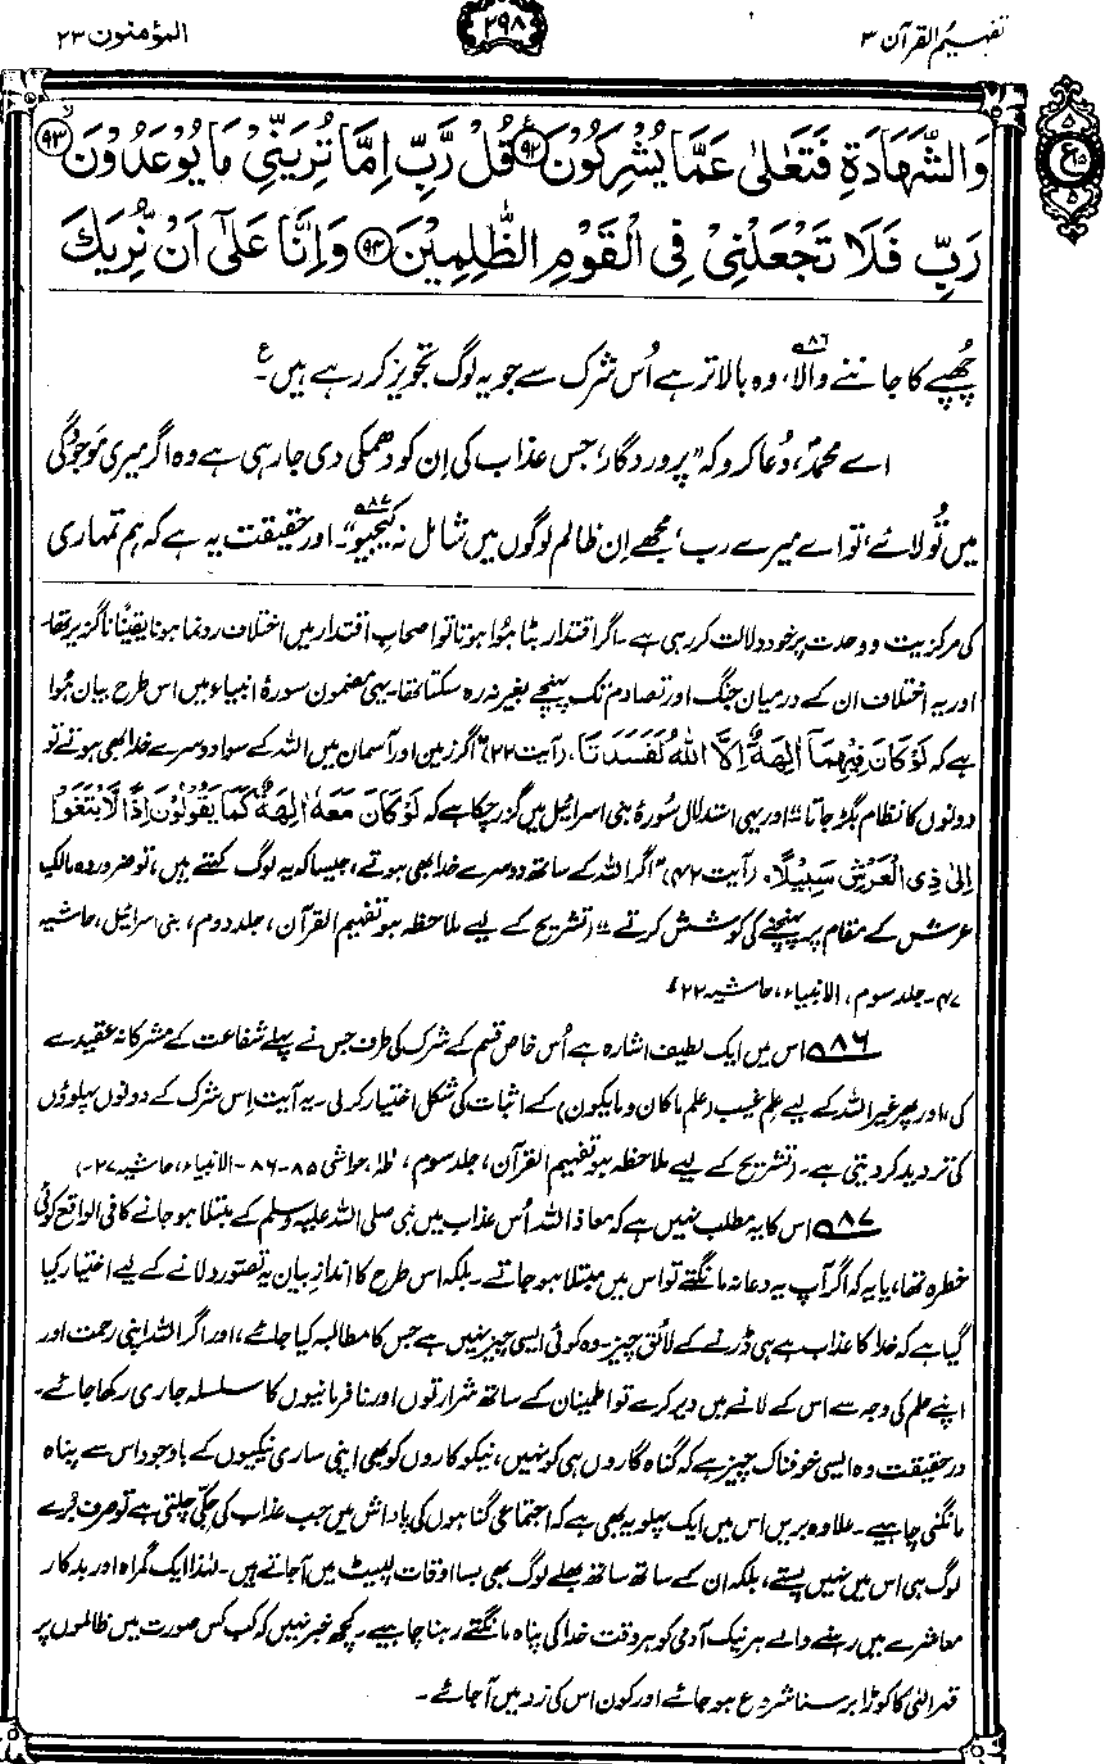 تفہیم القرآن ۳
۲۹۸
المؤمنون ۲۳
ع
۵
۱۵
۵
وَالشَّهَادَةِ فَتَعٰلٰى عَمَّا يُشْرِكُوْنَ ﴿۹۲﴾ قُلْ رَّبِّ اِمَّا تُرِيَنِّيْ مَا يُوْعَدُوْنَ ﴿۹۳﴾
رَبِّ فَلَا تَجْعَلْنِيْ فِي الْقَوْمِ الظّٰلِمِيْنَ ﴿۹۴﴾ وَاِنَّا عَلٰٓى اَنْ نُّرِيَكَ
چُھپے کا جاننے والا،۸۶ وہ بالاتر ہے اُس شرک سے جو یہ لوگ تجویز کر رہے ہیں۔ ع
اے محمدؐ، دُعا کرو کہ ”پروردگار، جس عذاب کی اِن کو دھمکی دی جا رہی ہے وہ اگر میری موجودگی
میں تُو لائے، تو اے میرے رب، مجھے اِن ظالم لوگوں میں شامل نہ کیجیو“۸۷۔ اور حقیقت یہ ہے کہ ہم تمہاری
کی مرکزیت و وحدت پر خود دلالت کر رہی ہے۔ اگر اقتدار بٹا ہُوا ہوتا تو اصحابِ اقتدار میں اختلاف رونما ہونا یقینًا ناگزیر تھا۔
اور یہ اختلاف ان کے درمیان جنگ اور تصادم تک پہنچے بغیر نہ رہ سکتا تھا۔ یہی مضمون سورۂ انبیاء میں اس طرح بیان ہُوا
ہے کہ لَوْ كَانَ فِيْهِمَآ اٰلِهَةٌ اِلَّا اللّٰهُ لَفَسَدَتَا، (آیت ۲۲) ”اگر زمین اور آسمان میں اللہ کے سوا دوسرے خدا بھی ہوتے تو
دونوں کا نظام بگڑ جاتا“ اور یہی استدلال سُورۂ بنی اسرائیل میں گزر چکا ہے کہ لَوْ كَانَ مَعَهٗٓ اٰلِهَةٌ كَمَا يَقُوْلُوْنَ اِذًا لَّابْتَغَوْا
اِلٰى ذِي الْعَرْشِ سَبِيْلًا، (آیت ۴۲) ”اگر اللہ کے ساتھ دوسرے خدا بھی ہوتے، جیسا کہ یہ لوگ کہتے ہیں، تو ضرور وہ مالکِ
عرش کے مقام پر پہنچنے کی کوشش کرتے“ (تشریح کے لیے ملاحظہ ہو تفہیم القرآن، جلد دوم، بنی اسرائیل، حاشیہ
۴۷۔ جلد سوم، الانبیاء، حاشیہ ۲۲)۔
۸۶ اس میں ایک لطیف اشارہ ہے اُس خاص قسم کے شرک کی طرف جس نے پہلے شفاعت کے مشرکانہ عقیدے
کی، اور پھر غیر اللہ کے لیے علمِ غیب (علم ما کان و ما یکون) کے اثبات کی شکل اختیار کر لی۔ یہ آیت اِس شرک کے دونوں پہلوؤں
کی تردید کر دیتی ہے۔ (تشریح کے لیے ملاحظہ ہو تفہیم القرآن، جلد سوم، طٰہٰ، حواشی ۸۵-۸۶۔ الانبیاء، حاشیہ ۲۷۔)
۸۷ اس کا یہ مطلب نہیں ہے کہ معاذ اللہ اُس عذاب میں نبی صلی اللہ علیہ وسلم کے مبتلا ہو جانے کا فی الواقع کوئی
خطرہ تھا، یا یہ کہ اگر آپ یہ دعا نہ مانگتے تو اس میں مبتلا ہو جاتے۔ بلکہ اس طرح کا اندازِ بیان یہ تصور دلانے کے لیے اختیار کیا
گیا ہے کہ خدا کا عذاب ہے ہی ڈرنے کے لائق چیز۔ وہ کوئی ایسی چیز نہیں ہے جس کا مطالبہ کیا جائے، اور اگر اللہ اپنی رحمت اور
اپنے حلم کی وجہ سے اس کے لانے میں دیر کرے تو اطمینان کے ساتھ شرارتوں اور نافرمانیوں کا سلسلہ جاری رکھا جائے۔
درحقیقت وہ ایسی خوفناک چیز ہے کہ گناہ گاروں ہی کو نہیں، نیکوکاروں کو بھی اپنی ساری نیکیوں کے باوجود اس سے پناہ
مانگنی چاہیے۔ علاوہ بریں اس میں ایک پہلو یہ بھی ہے کہ اجتماعی گناہوں کی پاداش میں جب عذاب کی چکّی چلتی ہے تو صرف بُرے
لوگ ہی اس میں نہیں پستے، بلکہ ان کے ساتھ ساتھ بھلے لوگ بھی بسا اوقات لپیٹ میں آ جاتے ہیں۔ لہٰذا ایک گمراہ اور بدکار
معاشرے میں رہنے والے ہر نیک آدمی کو ہر وقت خدا کی پناہ مانگتے رہنا چاہیے۔ کچھ خبر نہیں کہ کب کس صورت میں ظالموں پر
قہرِ الٰہی کا کوڑا برسنا شروع ہو جائے اور کون اس کی زد میں آ جائے۔